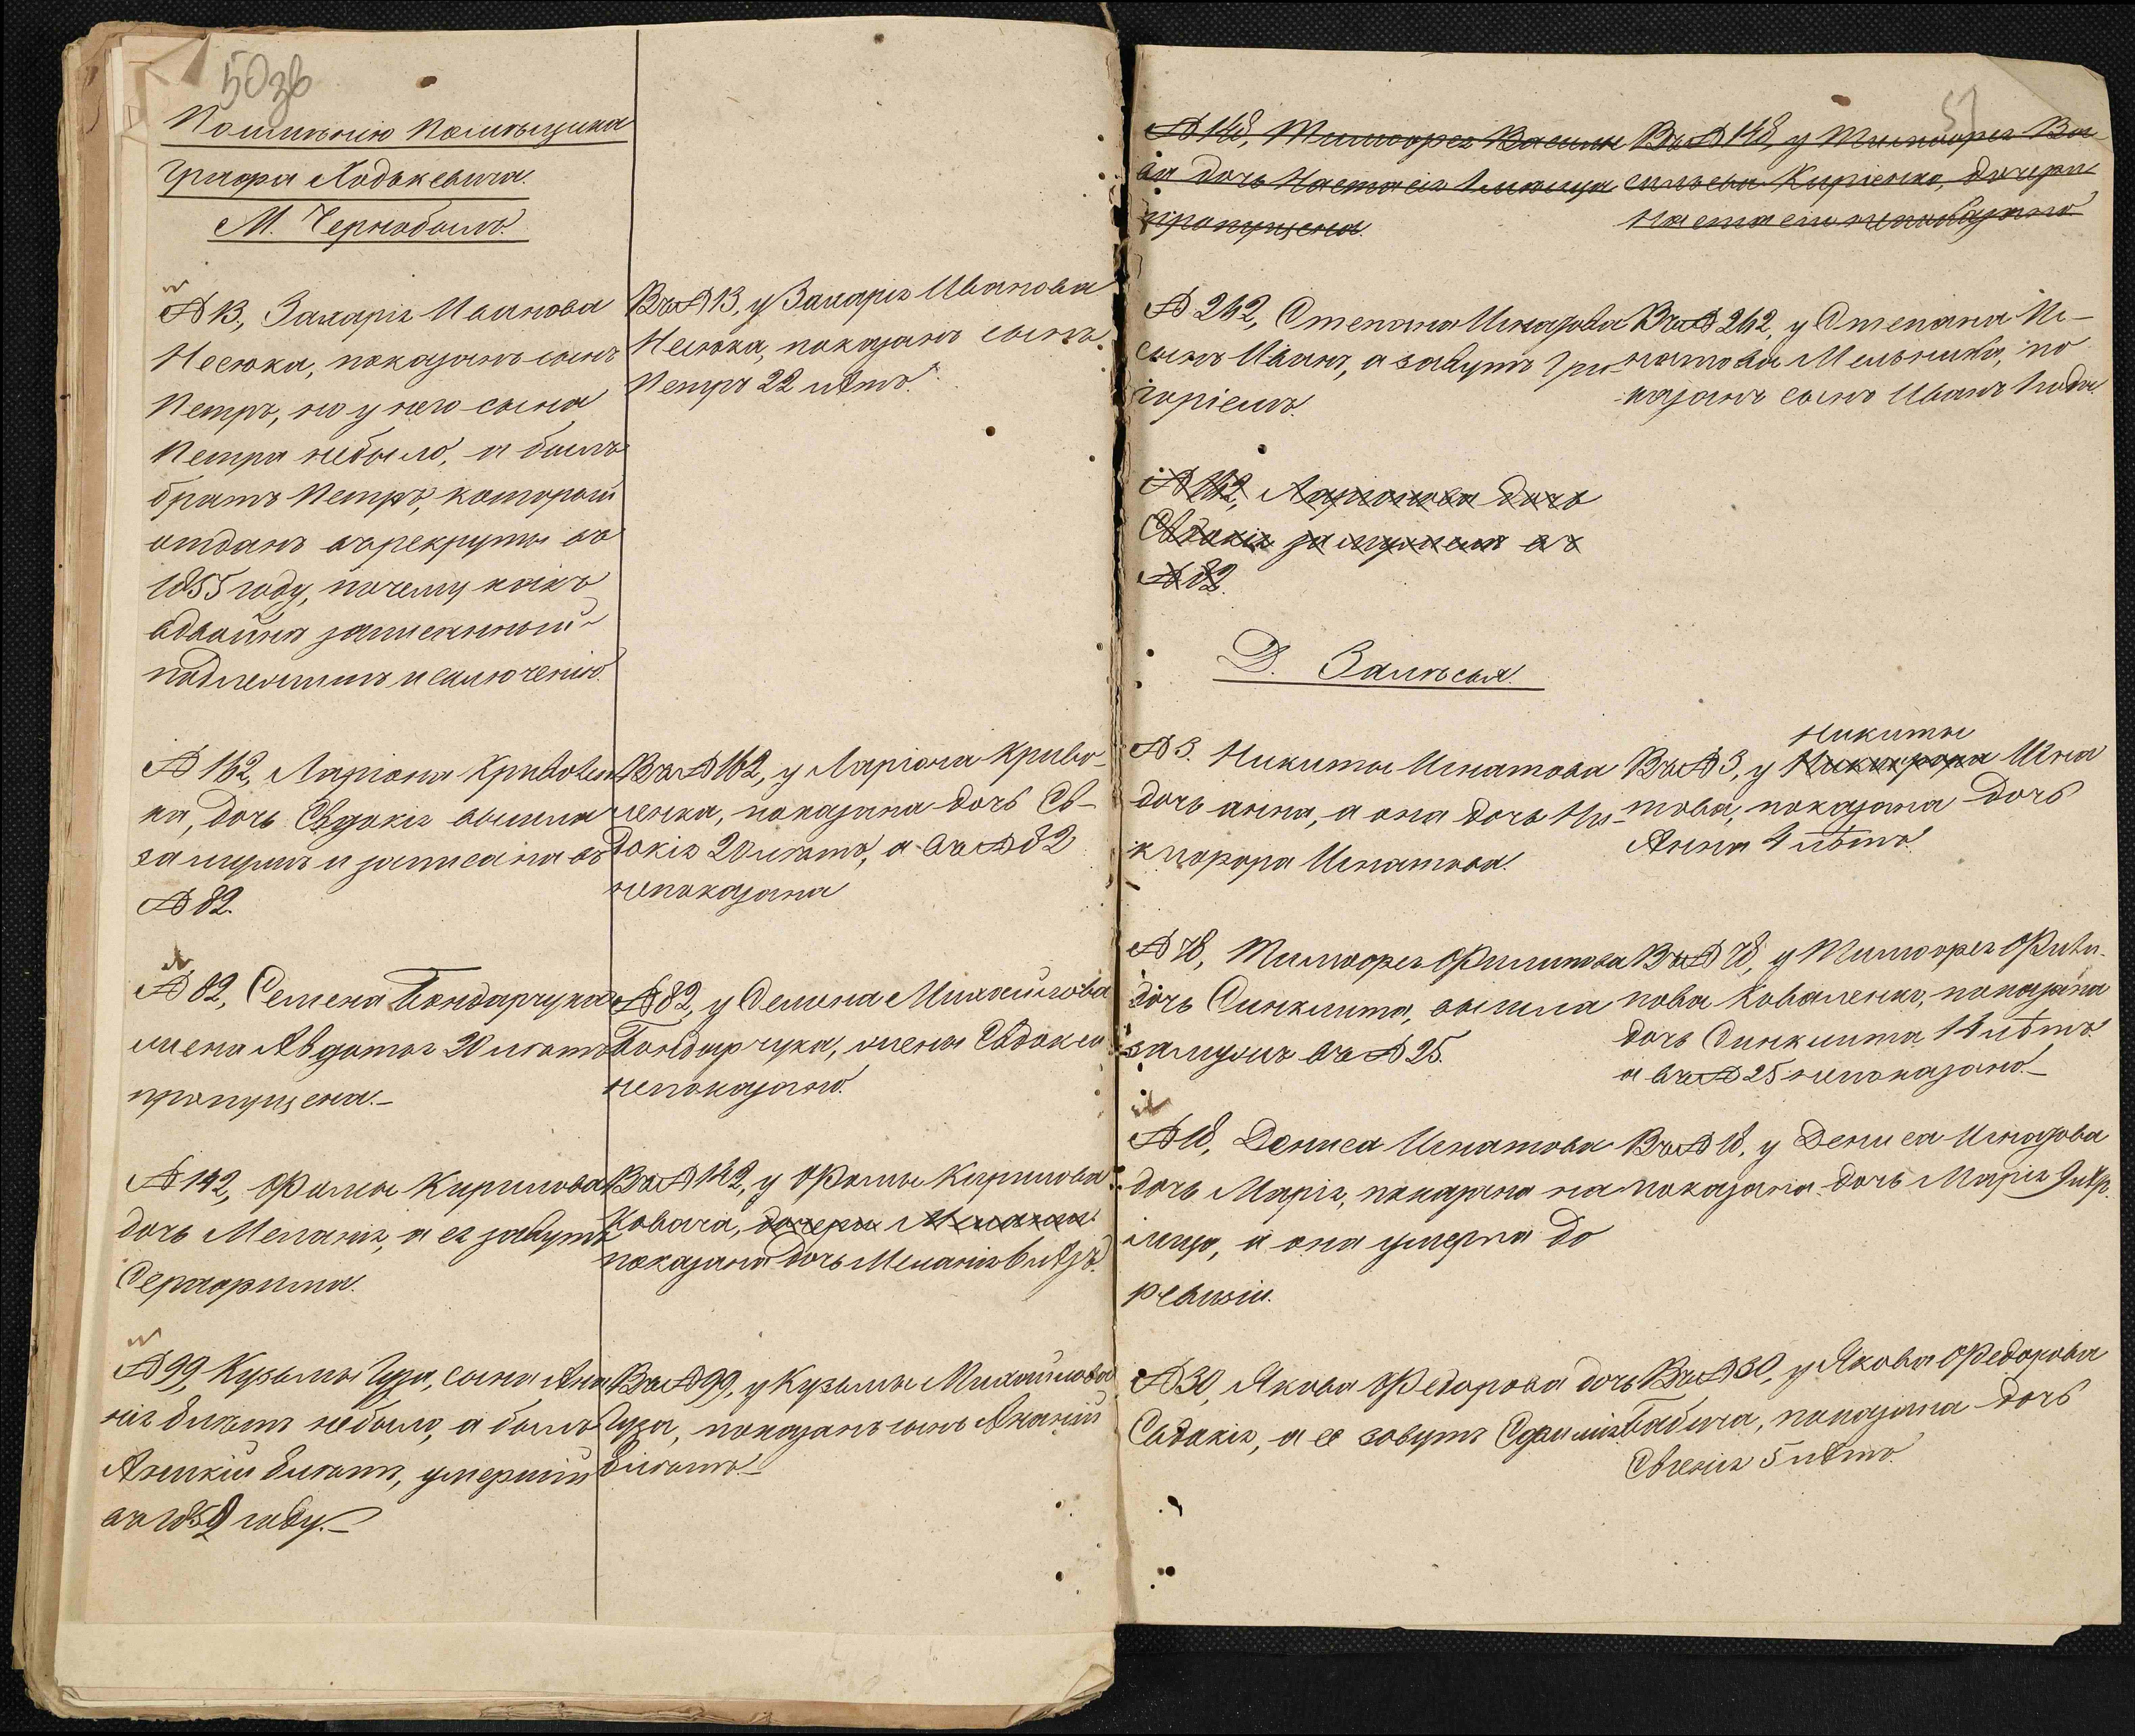 50зв
По имѣнію Помѣщика
Графа Ходькевича.
М. Чернобыль.
№ 13, Захарія Иванова
Несюка, показанъ сынъ
Петръ, но у него сына
Петра небыло, а былъ
братъ Петръ, который
отданъ въ рекруты въ
1855 году, почему какъ
вдвойнѣ записанный
подлежитъ исключенію.
Въ № 13, у Захарія Иванова
Несюка, показанъ сынъ
Петръ 22 лѣтъ.
№ 162, Ларіона Кривовен
ка, дочь Евдокія вышла
замужъ и записана въ
№ 82.
Въ № 162, у Ларіона Криво-
венка, показана дочь Ев-
докія 20 лѣтъ, а въ № 82
непоказана
№ 82, Семена Бондарчука
жена Авдотья 20 лѣтъ
пропущена.-
№ 82, у Семена Михайлова
Бондарчука, жены Евдокеи
непоказано.
№ 142, Фомы Кирилова
дочь Меланія, а ея зовутъ
Серафима.
Въ № 142, у Фомы Кирилова
Ковача, дочери Меланіи
показана дочь Меланія 6 лѣтъ.
№ 99, Кузьмы Гузи, сына Ана
нія 8 лѣтъ небыло, а былъ
Аникій 8 лѣтъ, умершій
въ 1852 году.-
Въ № 99, у Кузьмы Михайлова
Гузя, показанъ сынъ Ананій
8 лѣтъ.-
51
№ 148, Тимофея Василье
ва дочь Настасія 1 мѣсяца
пропущена.
Въ № 148, у Тимофея Ва-
сильева Кириенко, дочери
Настасіи непоказано
№ 242, Степана Игнатова
сынъ Иванъ, а зовутъ Гри-
горіемъ.
Въ № 242, у Степана Иг-
натова Мельника, по
казанъ сынъ Иванъ 1 года.
№ 162, Ларіонова дочь
Евдокія замужемъ въ
№ 82.
Д. Залѣсье.
№ 3. Никиты Игнатова
дочь анна, а она дочь Ни-
кифора Игнатова.
Никиты
Въ № 3, у Никифора Игна
това, показана дочь
Анна 4 лѣтъ.
№ 78, Тимофея Филипова
дочь Синклита, вышла
замужъ въ № 25.
Въ № 78, у Тимофея Фили-
пова Коваленко, показана
дочь Синклита 14 лѣтъ.
а въ № 25 непоказано.-
№ 18, Дениса Игнатова
дочь Марія, показана на
лицо, а она умерла до
ревизіи.
Въ № 18, у Дениса Игнатова
показана дочь Марія
№ 30, Якова Федорова дочь
Евдокія, а ее зовутъ Ефимія.
Въ № 30, у Якова Федорова
Бабича, показана дочь
Евгенія 5 лѣтъ.